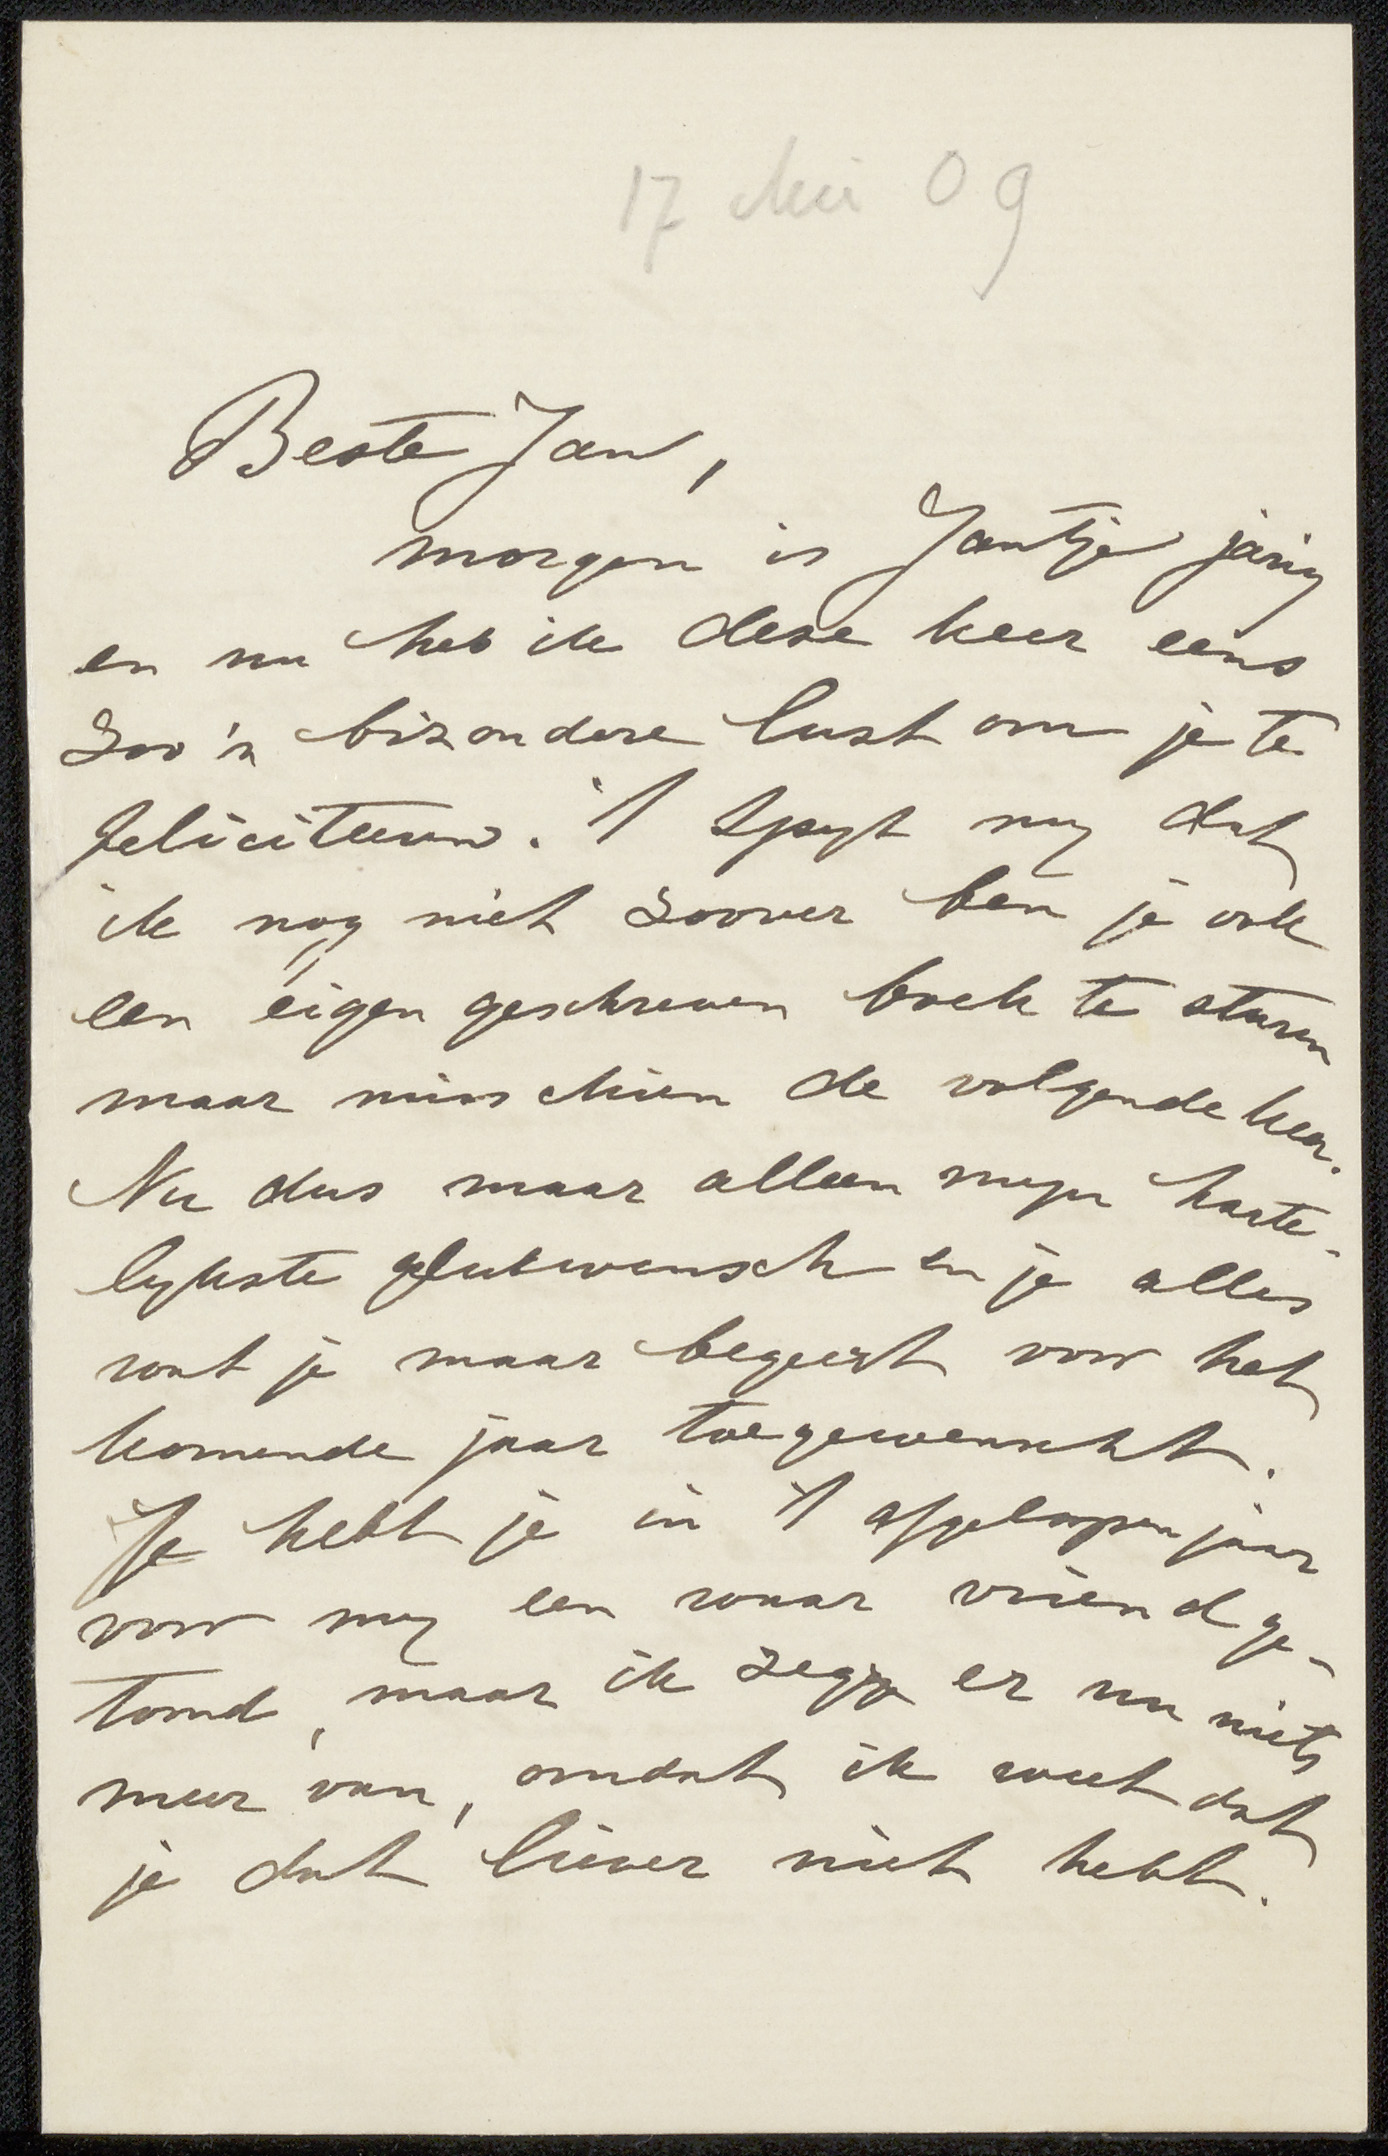 17 Mei 09
Beste Jan,
morgen is Jantje jarig
en nu heb ik deze keer eens
zoo'n bizondere lust om je te
feliciteeren. 't Spyt my dat
ik nog niet zoover ben je ook
een eigen geschreven boek te sturen
maar misschien de volgende keer.
Nu dus maar alleen myn harte-
lykste gelukwensch en je alles
wat je maar begeert voor het
komende jaar toegewenscht.
Je hebt je in 't afgeloopen jaar
voor my een waar vriend ge-
toond, maar ik zeg er nu niets
meer van, omdat ik weet dat
je dat liever niet hebt.